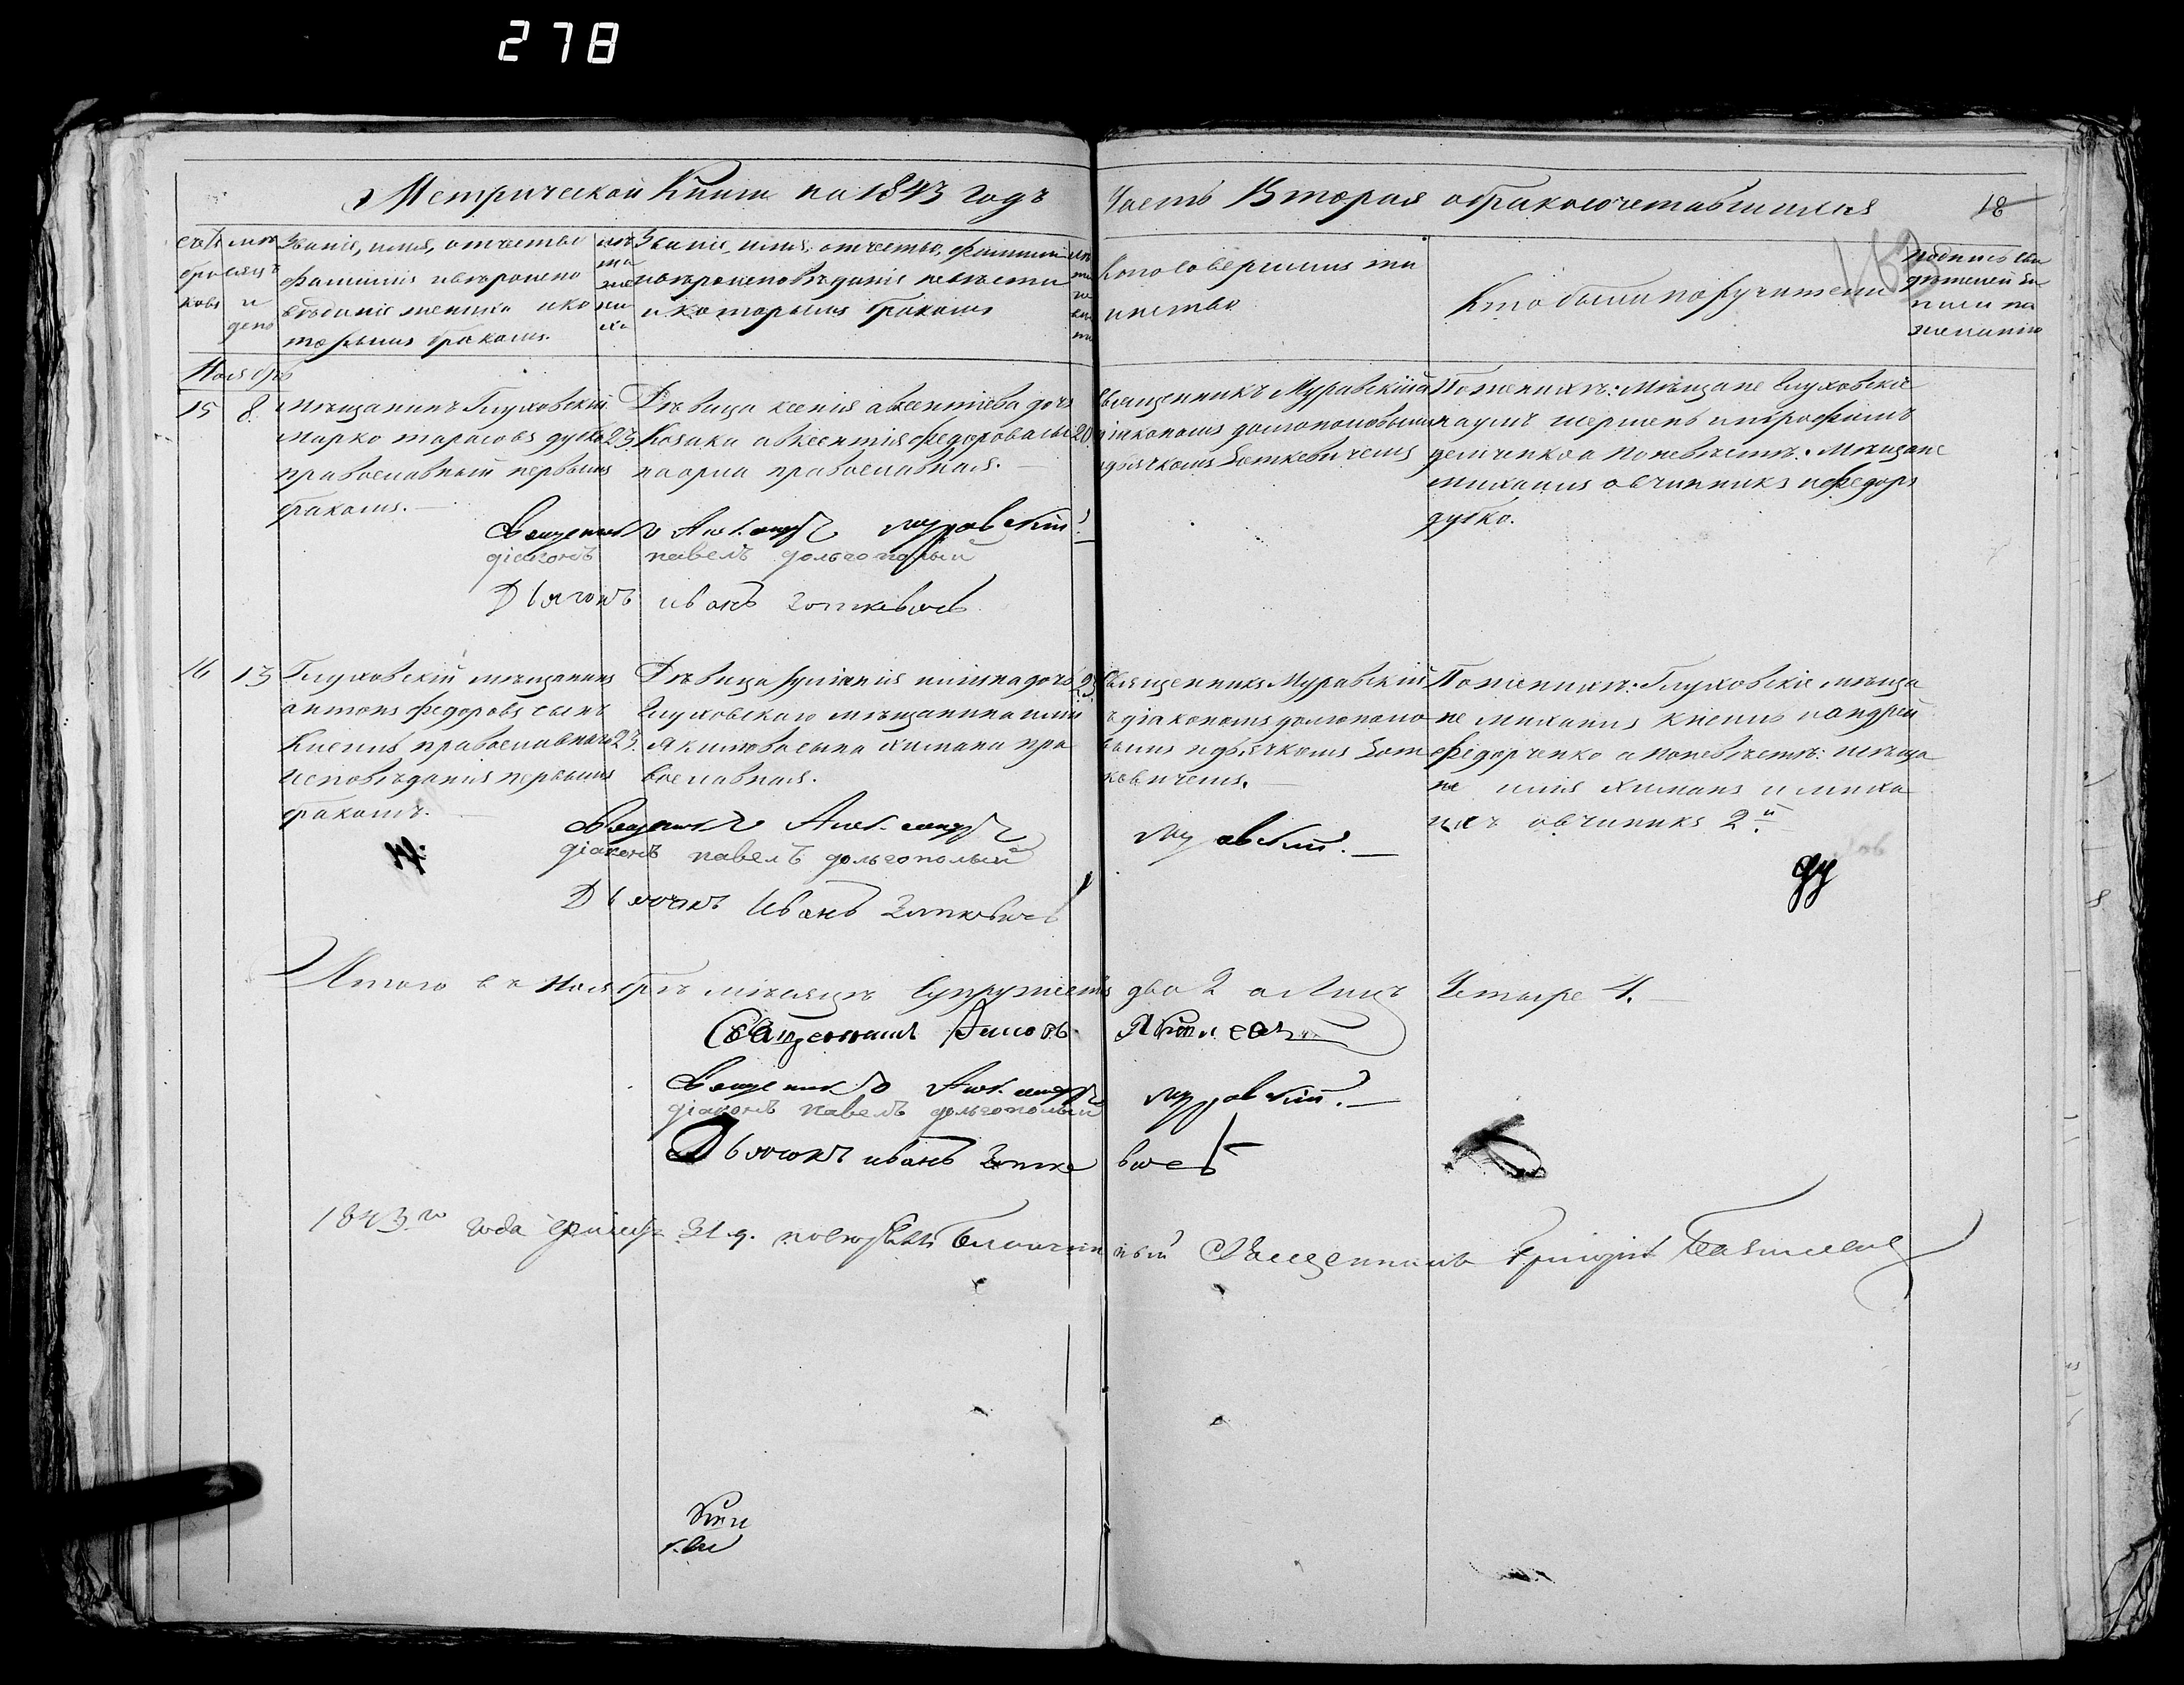 278
Метрической Книги на 1843 годъ
Часть Вторая о бракосочетавшихся
18
Званіе, имя, отчество
фамилія и вѣроиспо
вѣданіе жениха и ко
торымъ бракомъ.
Званіе, имя, отчество, фамилія
и вѣроисповѣданіе невѣсты
и которымъ бракомъ
Кто совершилъ та
инство
Кто были поручители
подпись сви
дѣтелей за
писи по
желанію
Ноябрь
15 8.
Мѣщанинъ Глуховскій
Марко Тарасовъ Дутко
православный первымъ
бракомъ.
23
Дѣвица Ксенія Авксентіева дочь
Козака Авксентія Федорова
православная.
20
Священникъ Муравскій съ
діакономъ Долгополовымъ
и дьячкомъ Заткевичемъ
По женихѣ: Мѣщане Глуховскіе
Наумъ Шершень и Трофимъ
Демченко а по невѣстѣ: Мѣщане
Михаилъ Овчинникъ и Федоръ
Дутко.
Священникъ Александръ Муравскій.
діаконъ павелъ дольгополый
Дьячокъ иванъ заткевичъ
16 13
Глуховскій мѣщанинъ
Антонъ Федоровъ сынъ
Кислый православнаго
исповѣданія первымъ
бракомъ.
23.
Дѣвица Іуліанія Иліина дочь
Глуховскаго мѣщанина Иліи
Якимова сына Химана пра
вославная.
23
Священникъ Муравскій
съ діакономъ Долгополо
вымъ и дьячкомъ Зат
кевичемъ.
По женихѣ: Глуховскіе мѣща
не Михаилъ Кислый и Андрей
Федорченко а по невѣстѣ: мѣща
не Илія Химанъ и Миха
илъ Овчинникъ 2й.
Священникъ Александръ Муравскій.
діаконъ павелъ дольгополый
Дьячокъ Иванъ Заткевичъ
ду
Итого въ Ноябрѣ мѣсяцѣ Супружествъ два 2 а Лицъ Четыре 4.
Священникъ
Священникъ Александръ Муравскій.
діаконъ павелъ дольгополый
Дьячокъ иванъ Заткевичъ
1843го года 31 д. Благочинный Священникъ Григорій